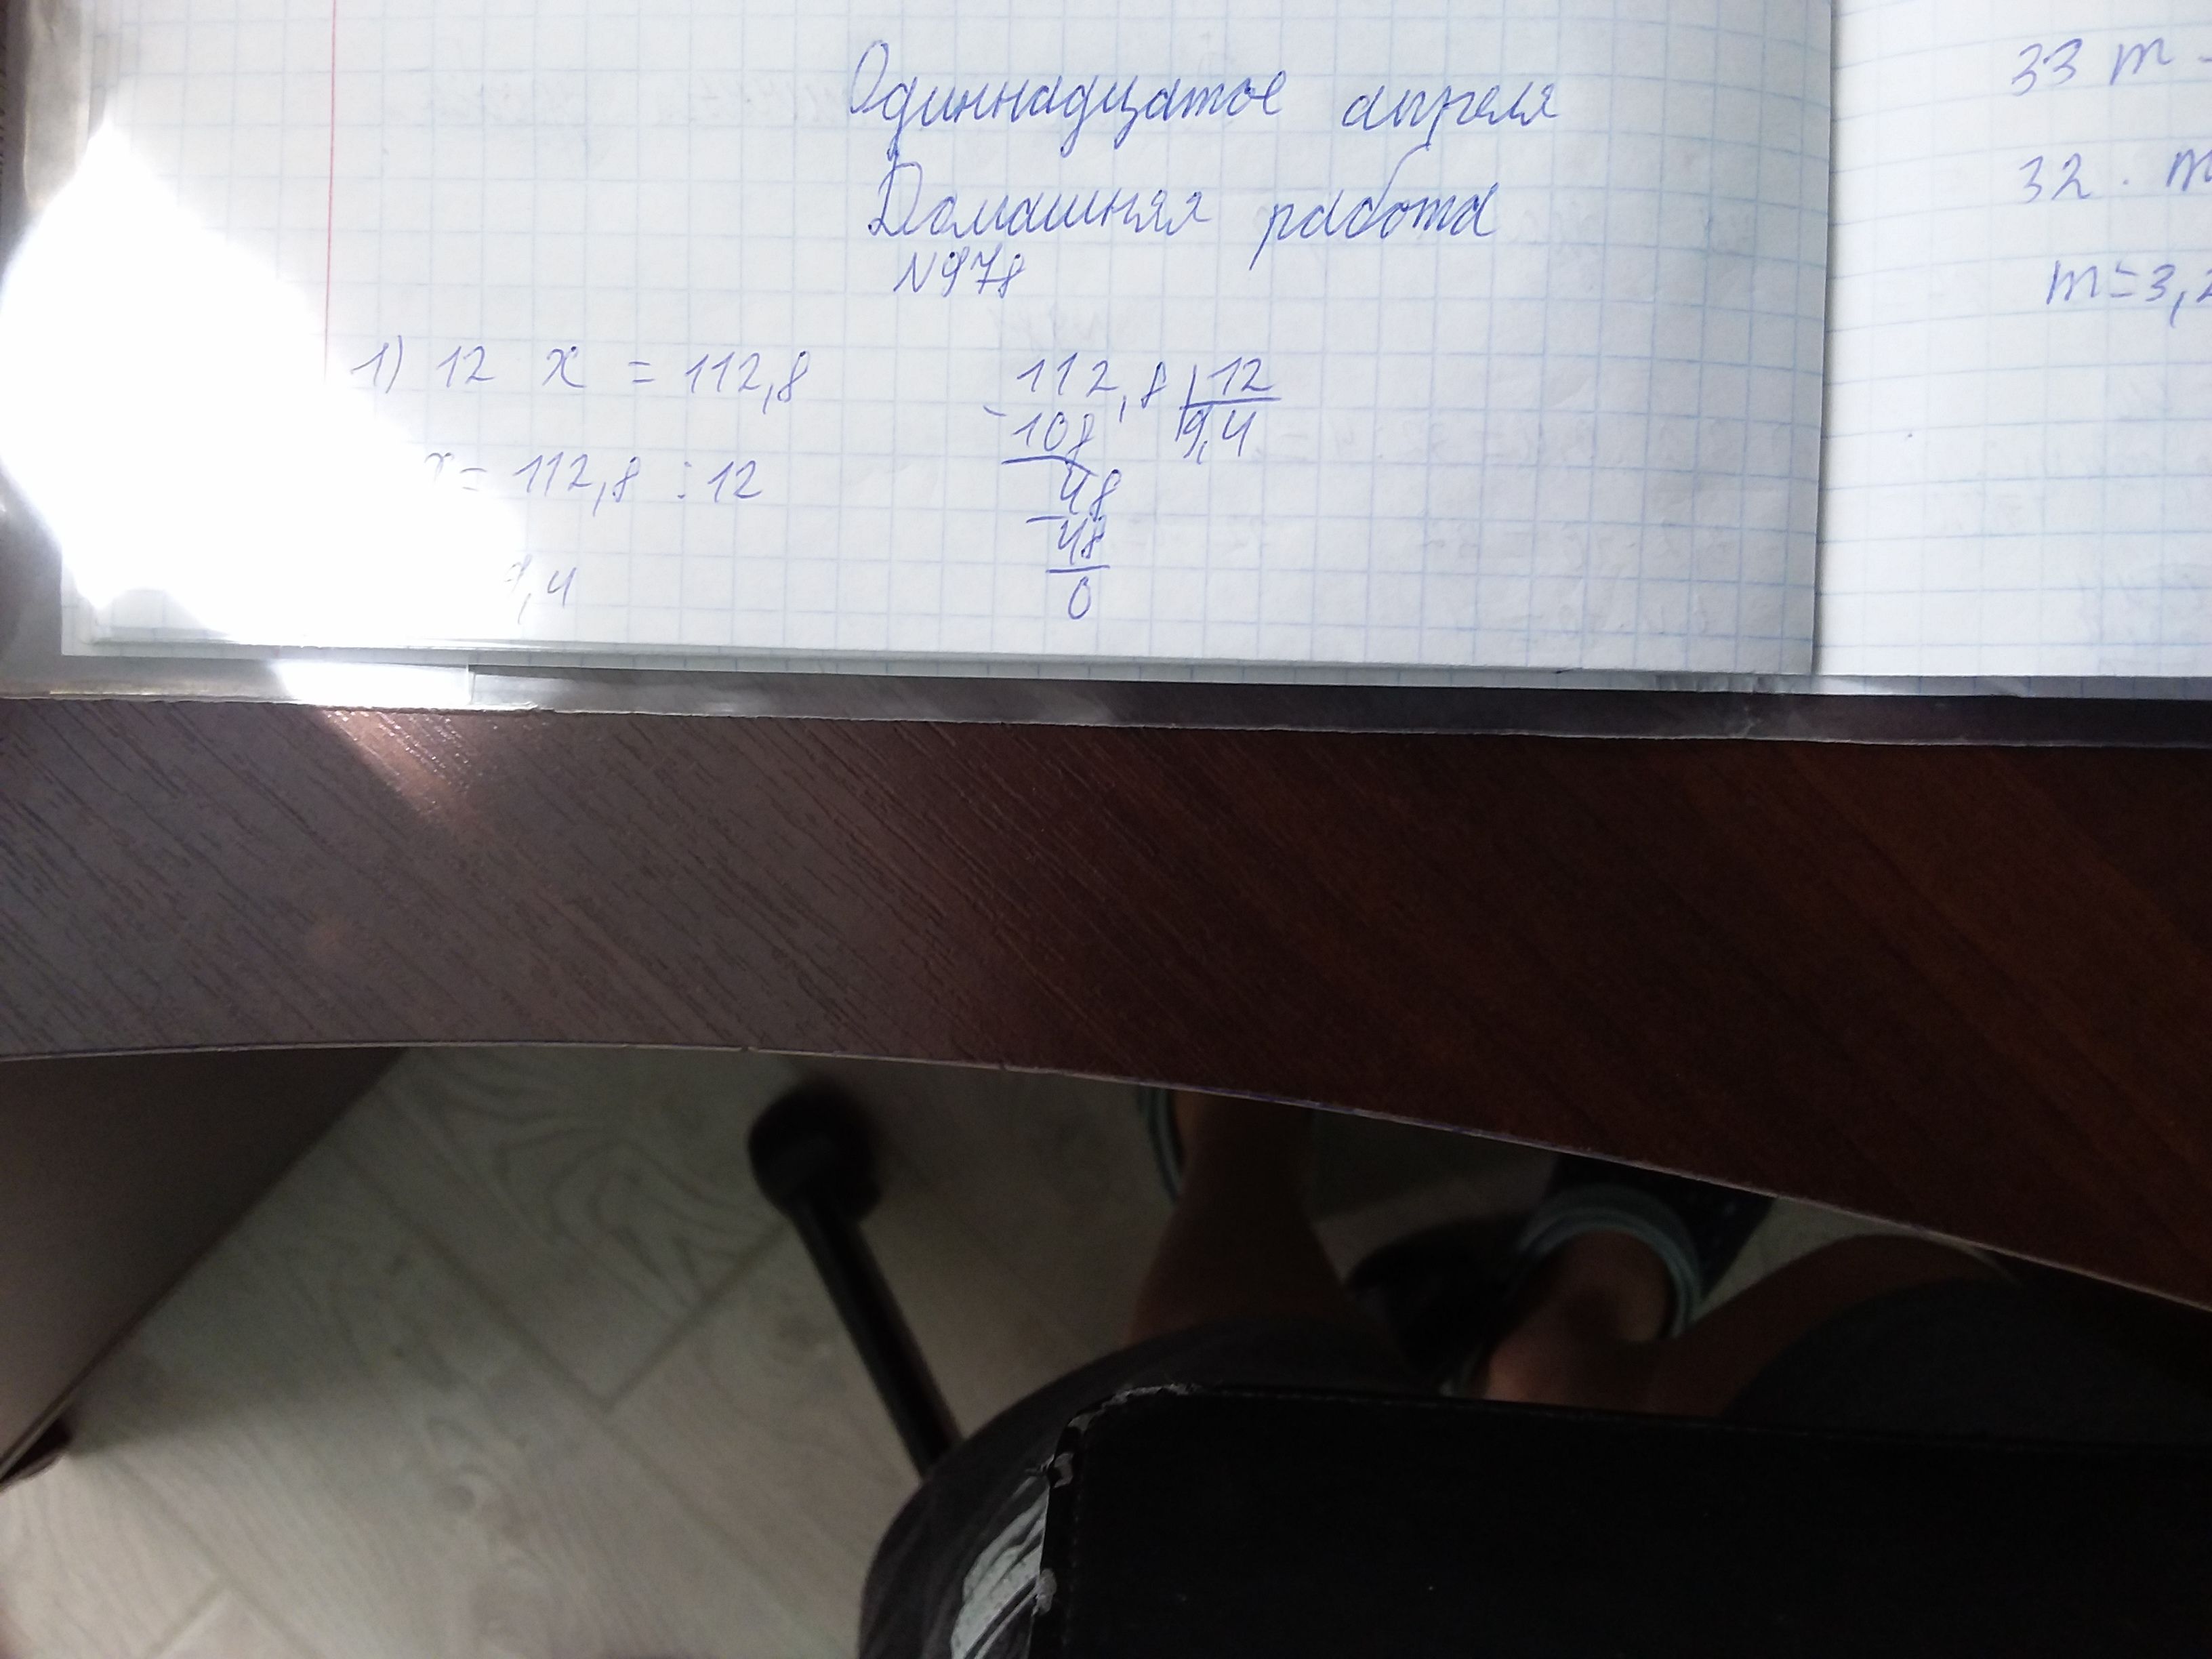 Одиннадцатое апреля
Домашняя работа
N978
1) 12 x = 112,8
x = 112,8 : 12
9,4
112,8 | 12
- 108 9,4
48
- 48
0
33 m -
32 . m
m = 3,2